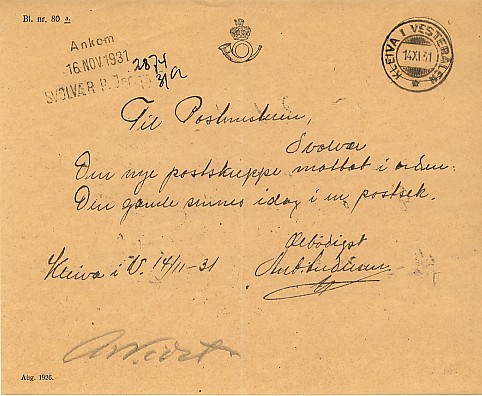 Bl. nr. 80 a.
Ankom
16.NOV.1931
SVOLVÆR
2874
KLEIVA I VESTERÅLEN
14 XI 31
Til Postmesteren,
Svolvær
Den nye postskuppe mottat i orden.
Den gamle sendes idag i en postsek.
Kleiva i V. 14/11-31
Ærbødigst
Aug. 1926.